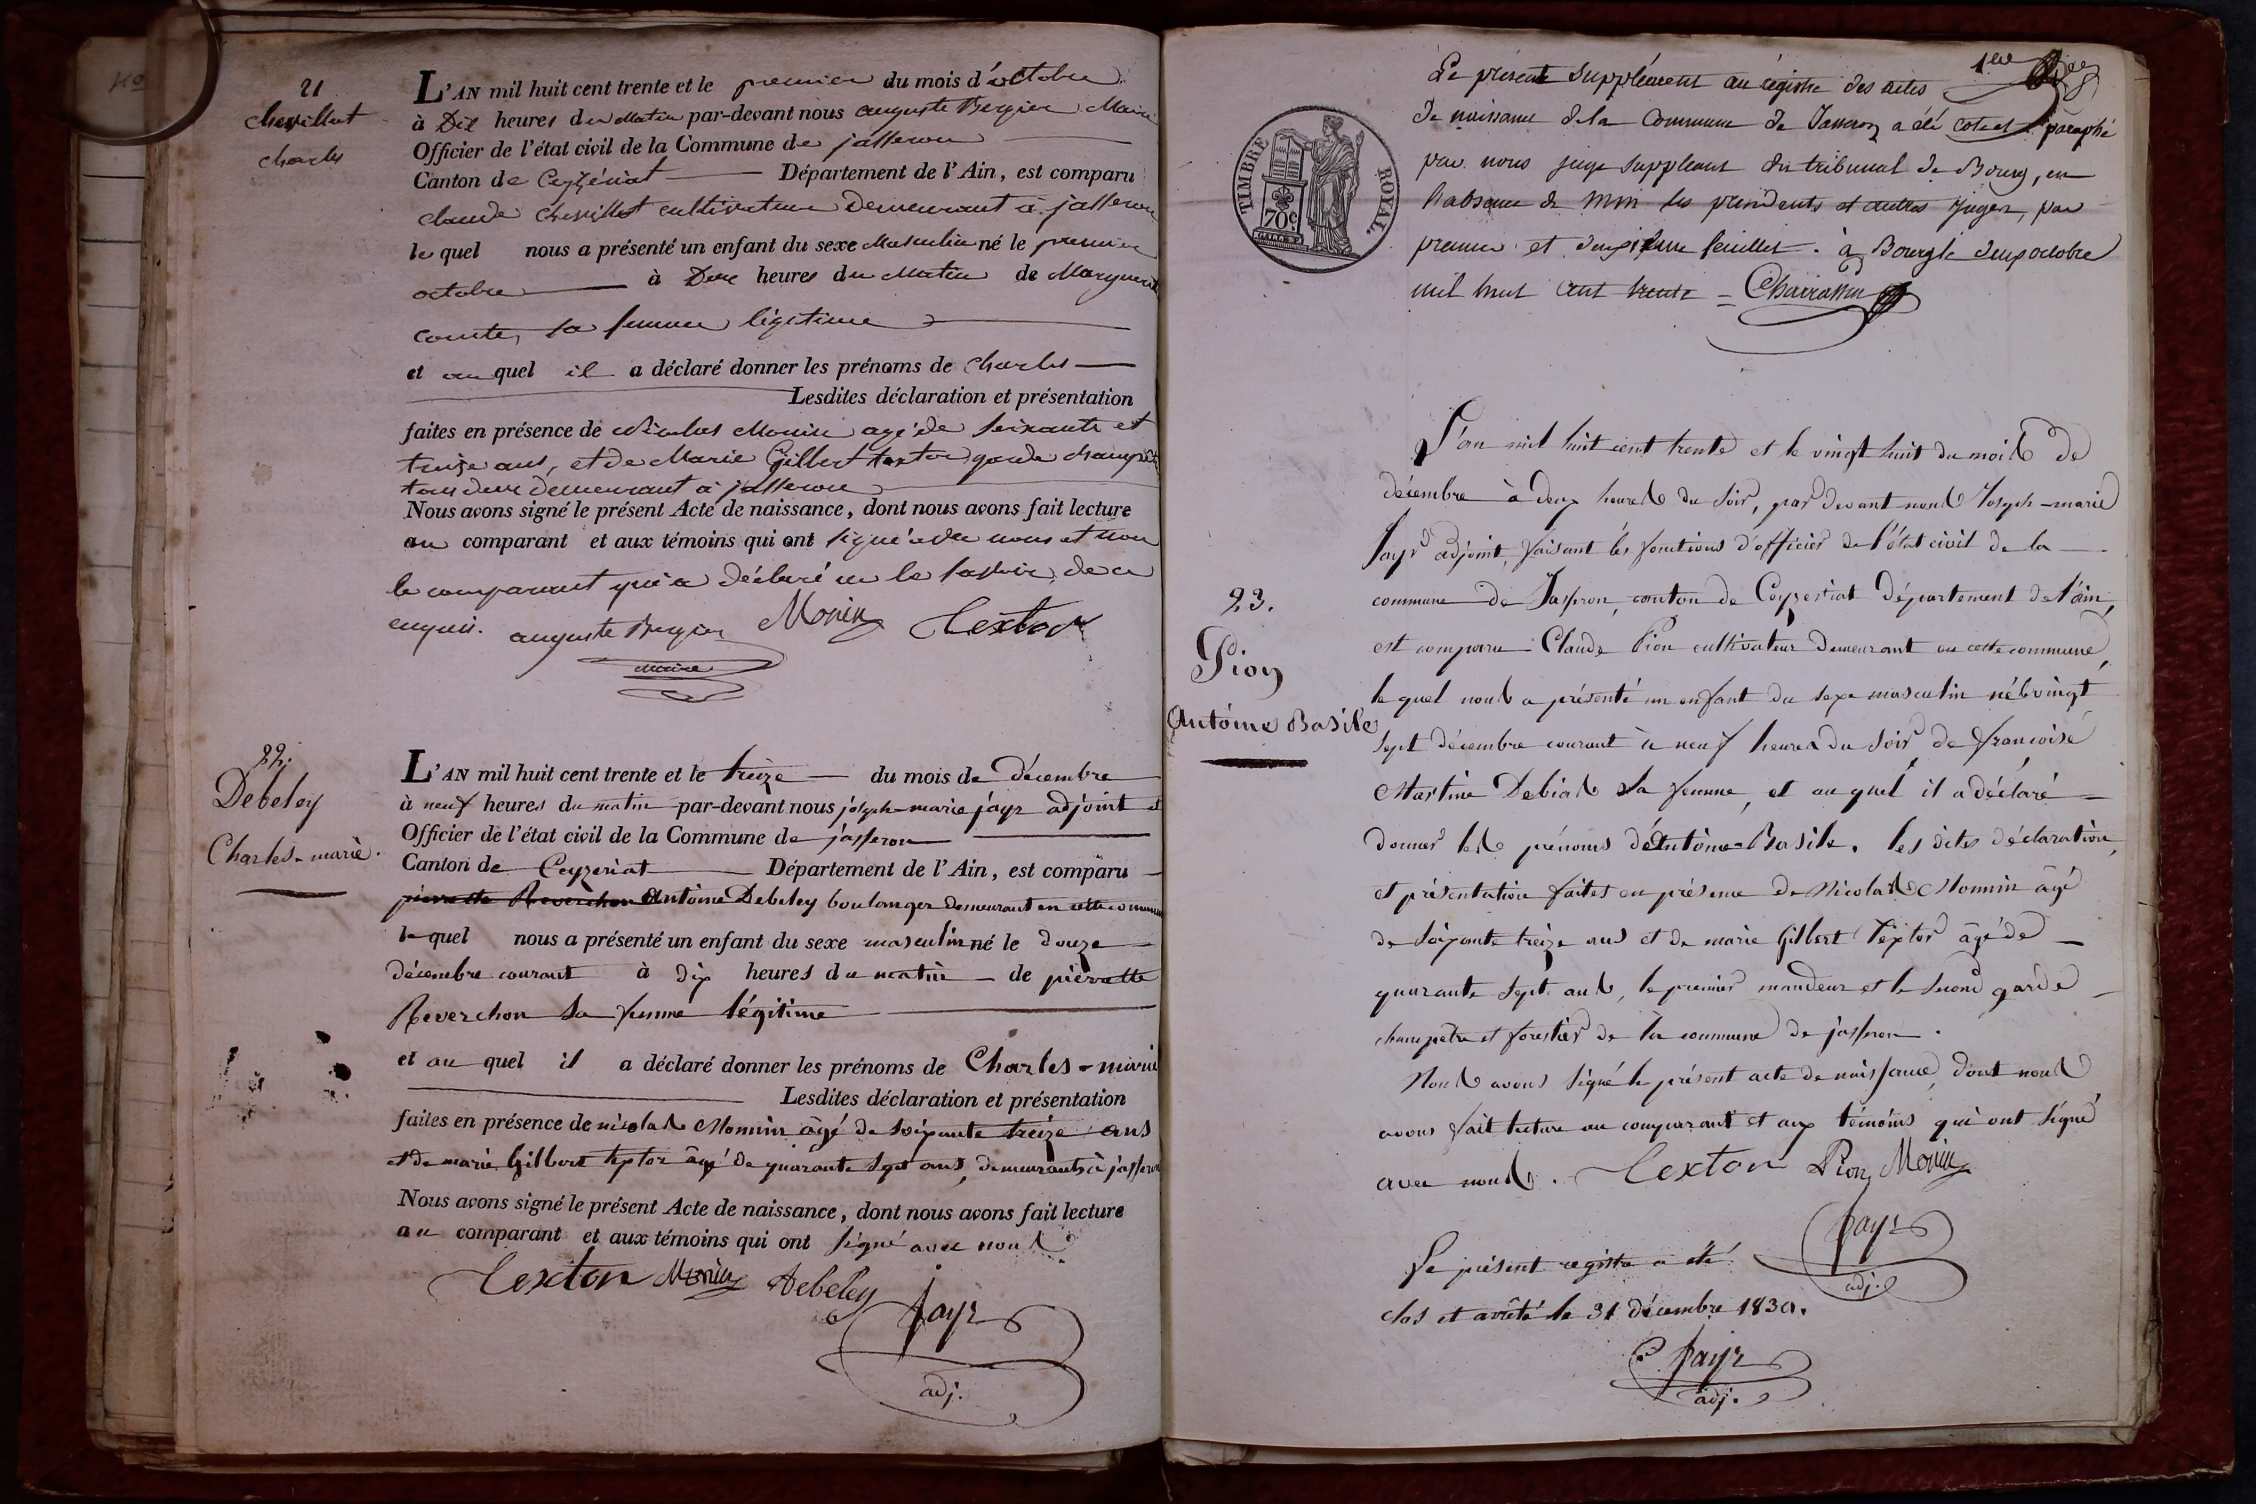 21
chevillat
charles
L'AN mil huit cent trente et le premier du mois d'octobre
à Dix heures du matin par-devant nous auguste Bergier Maire
Officier de l'état civil de la Commune de jasseron
Canton de Ceyzériat Département de l'Ain, est comparu
claude chevillat cultivateur demeurant à jasseron
le quel nous a présenté un enfant du sexe Masculin né le premier
octobre à Deux heures du Matin de Marguerite
comte, sa femme légitime
et au quel il a déclaré donner les prénoms de charles
Lesdites déclaration et présentation
faites en présence de Nicolas Monin agé de soixante et
treize ans, et de Marie Gilbert textor garde champêtre
tous deux demeurant à jasseron
Nous avons signé le présent Acte de naissance, dont nous avons fait lecture
au comparant et aux témoins qui ont signé avec nous et non
le comparant qui a déclaré ne le savoir de ce
enquis. auguste Bergier Monin Textor
maire
22.
Debeley
Charles-marie.
L'AN mil huit cent trente et le treize du mois de décembre
à neuf heures du matin par-devant nous joseph-marie jayr adjoint et
Officier de l'état civil de la Commune de jasseron
Canton de Ceyzeriat Département de l'Ain, est comparu
pierrette Reverchon Antoine Debeley boulanger demeurant en cette commune
le quel nous a présenté un enfant du sexe masculin né le douze
décembre courant à dix heures du matin de pierrette
Reverchon sa femme légitime
et au quel il a déclaré donner les prénoms de Charles-marie
Lesdites déclaration et présentation
faites en présence de nicolas Monnin âgé de soixante treize ans
et de marie Gilbert textor âgé de quarante sept ans, demeurants à jasseron
Nous avons signé le présent Acte de naissance, dont nous avons fait lecture
au comparant et aux témoins qui ont signé avec nous
Textor Monin Debeley
Jayr
adj.
1er
TIMBRE ROYAL
70c
Le présent supplément au régistre des actes
de naissance de la Commune de Jasseron a été coté et paraphé
par nous juge suppléant du tribunal de Bourg, en
l'absence de Mm les présidents et autres juges, par
premier et deuxième feuillet. à Bourg le deux octobre
mil huit cent trente = Charrassin
23.
Pion
Antoine Basile
L'an mil huit cent trente et le vingt huit du mois de
décembre à deux heures du soir, par devant nous Joseph-marie
Jayr adjoint, faisant les fonctions d'officier de l'état civil de la
commune de Jasseron, canton de Ceyzeriat département de l'ain,
est comparu Claude Pion cultivateur demeurant en cette commune,
le quel nous a présenté un enfant du sexe masculin né le vingt
sept décembre courant à neuf heures du soir de françoise
Martine Debias sa femme, et au quel il a déclaré
donner les prénoms d'Antoine-Basile. les dites déclaration,
et présentation faites en présence de Nicolas Monnin âgé
de soixante treize ans et de marie Gilbert Textor âgé de
quarante sept ans, le premier mandeur et le second garde
champetre et forestier de la commune de jasseron.
Nous avons signé le présent acte de naissance, dont nous
avons fait lecture au comparant et aux témoins qui ont signé
avec nous. Textor Pion Monin
Jayr
adj.
Le présent registre a été
clos et arrêté le 31 décembre 1830.
Jayr
adj.